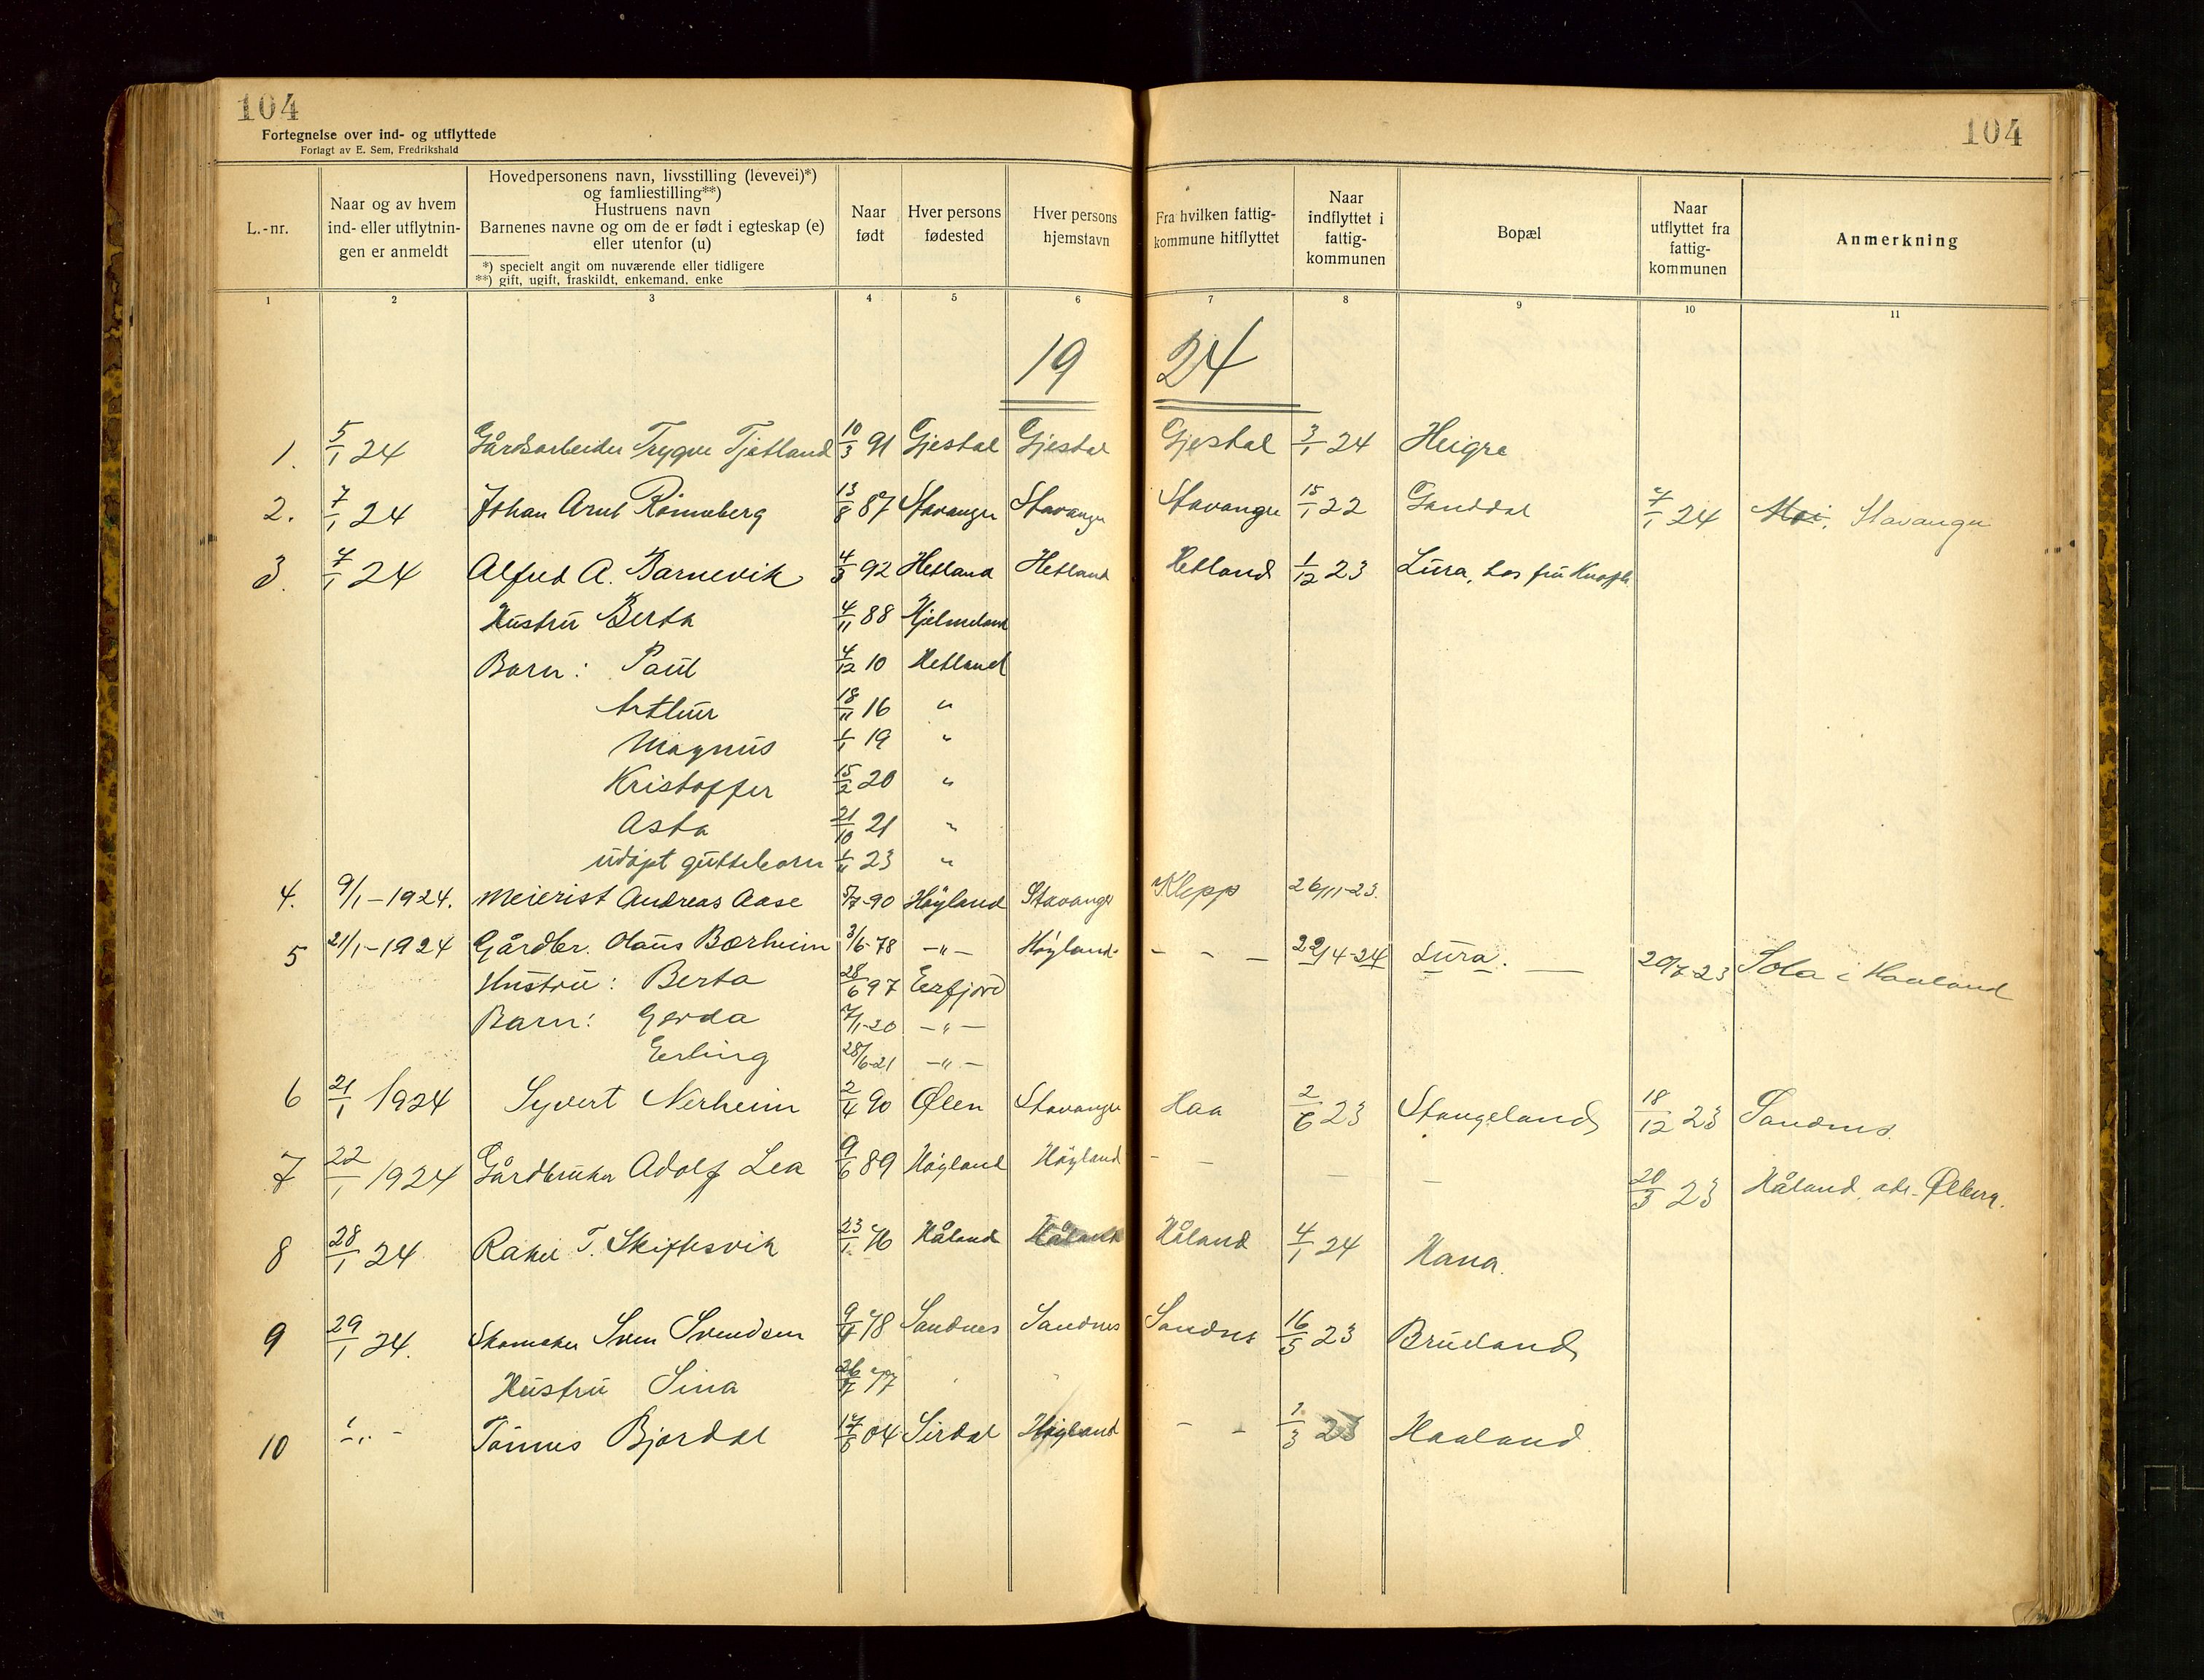 104
104
Fortegnelse over ind- og utflyttede
Forlagt av E. Sem, Fredrikshald
L.-nr.
Naar og av hvem ind- eller utflytnin- gen er anmeldt
Hovedpersonens navn, livsstilling (levevei)*)
og famliestilling**)
Hustruens navn
Barnenes navne og om de er født i egteskap (e)
eller utenfor (u)
*) specielt angit om nuværende eller tidligere
**) gift, ugift, fraskildt, enkemand, enke
Naar født
Hver persons fødested
Hver persons hjemstavn
Fra hvilken fattig- kommune hitflyttet
Naar indflyttet i fattig- kommunen
Bopæl
Naar utflyttet fra fattig- kommunen
Anmerkning
1 2 3 4 5 6 7 8 9 10 11
19 24
1. 5/1 24 Gårdsarbeider Trygve Tjetland 10/3 91 Gjestal Gjestal Gjestal 3/1 24 Heigre
2. 7/1 24 Johan Arnt Rönneberg 13/8 87 Stavanger Stavanger Stavanger 15/1 22 Ganddal 7/1 24 Stavanger
3. 7/1 24 Alfred A. Barnevik 4/3 92 Hetland Hetland Hetland 1/12 23 Lura, hos fru
Hustru Berta 4/11 88 Hjelmeland
Barn: Paul 4/12 10 Hetland
Arthur 18/11 16 "
Magnus 1/1 19 "
Kristoffer 15/2 20 "
Asta 21/10 21 "
udöpt guttebarn 1/11 23 "
4. 9/1-1924. Meierist Andreas Aase 5/7-90 Höyland Stavanger Klepp 26/11-23.
5 21/1-1924 Gårdbr. Olaus Bærheim 3/6-78 -"- Höyland - - - 22/4-24 Lura. — 20/7-23 Sola i Haaland
Hustru: Berta 28/6 97 Erfjord
Barn: Gerda 7/1-20 -"-
Erling 28/6-21 -"-
6 21/1 1924 Syvert Nerheim 2/4 90 Ølen Stavanger Haa 2/6 23 Stangeland 18/12 23 Sandnes.
7 22/1 1924 Gårdbruker Adolf Lea 9/6 89 Höyland Höyland - - - - 20/3 23 Håland, adr. Ølberg.
8 28/1 24 Rakel T. Skiftesvik 23/1 76 Håland Håland Håland 4/1 24 Hana.
9 29/1 24. Skomaker Sven Svendsen 9/4 78 Sandnes Sandnes Sandnes 16/5 23 Brueland
Hustru Sina 26/7 77 " "
10 -"- Tönnes Bjordal 17/5 04 Sirdal Höyland - - 1/3 23 Haaland.